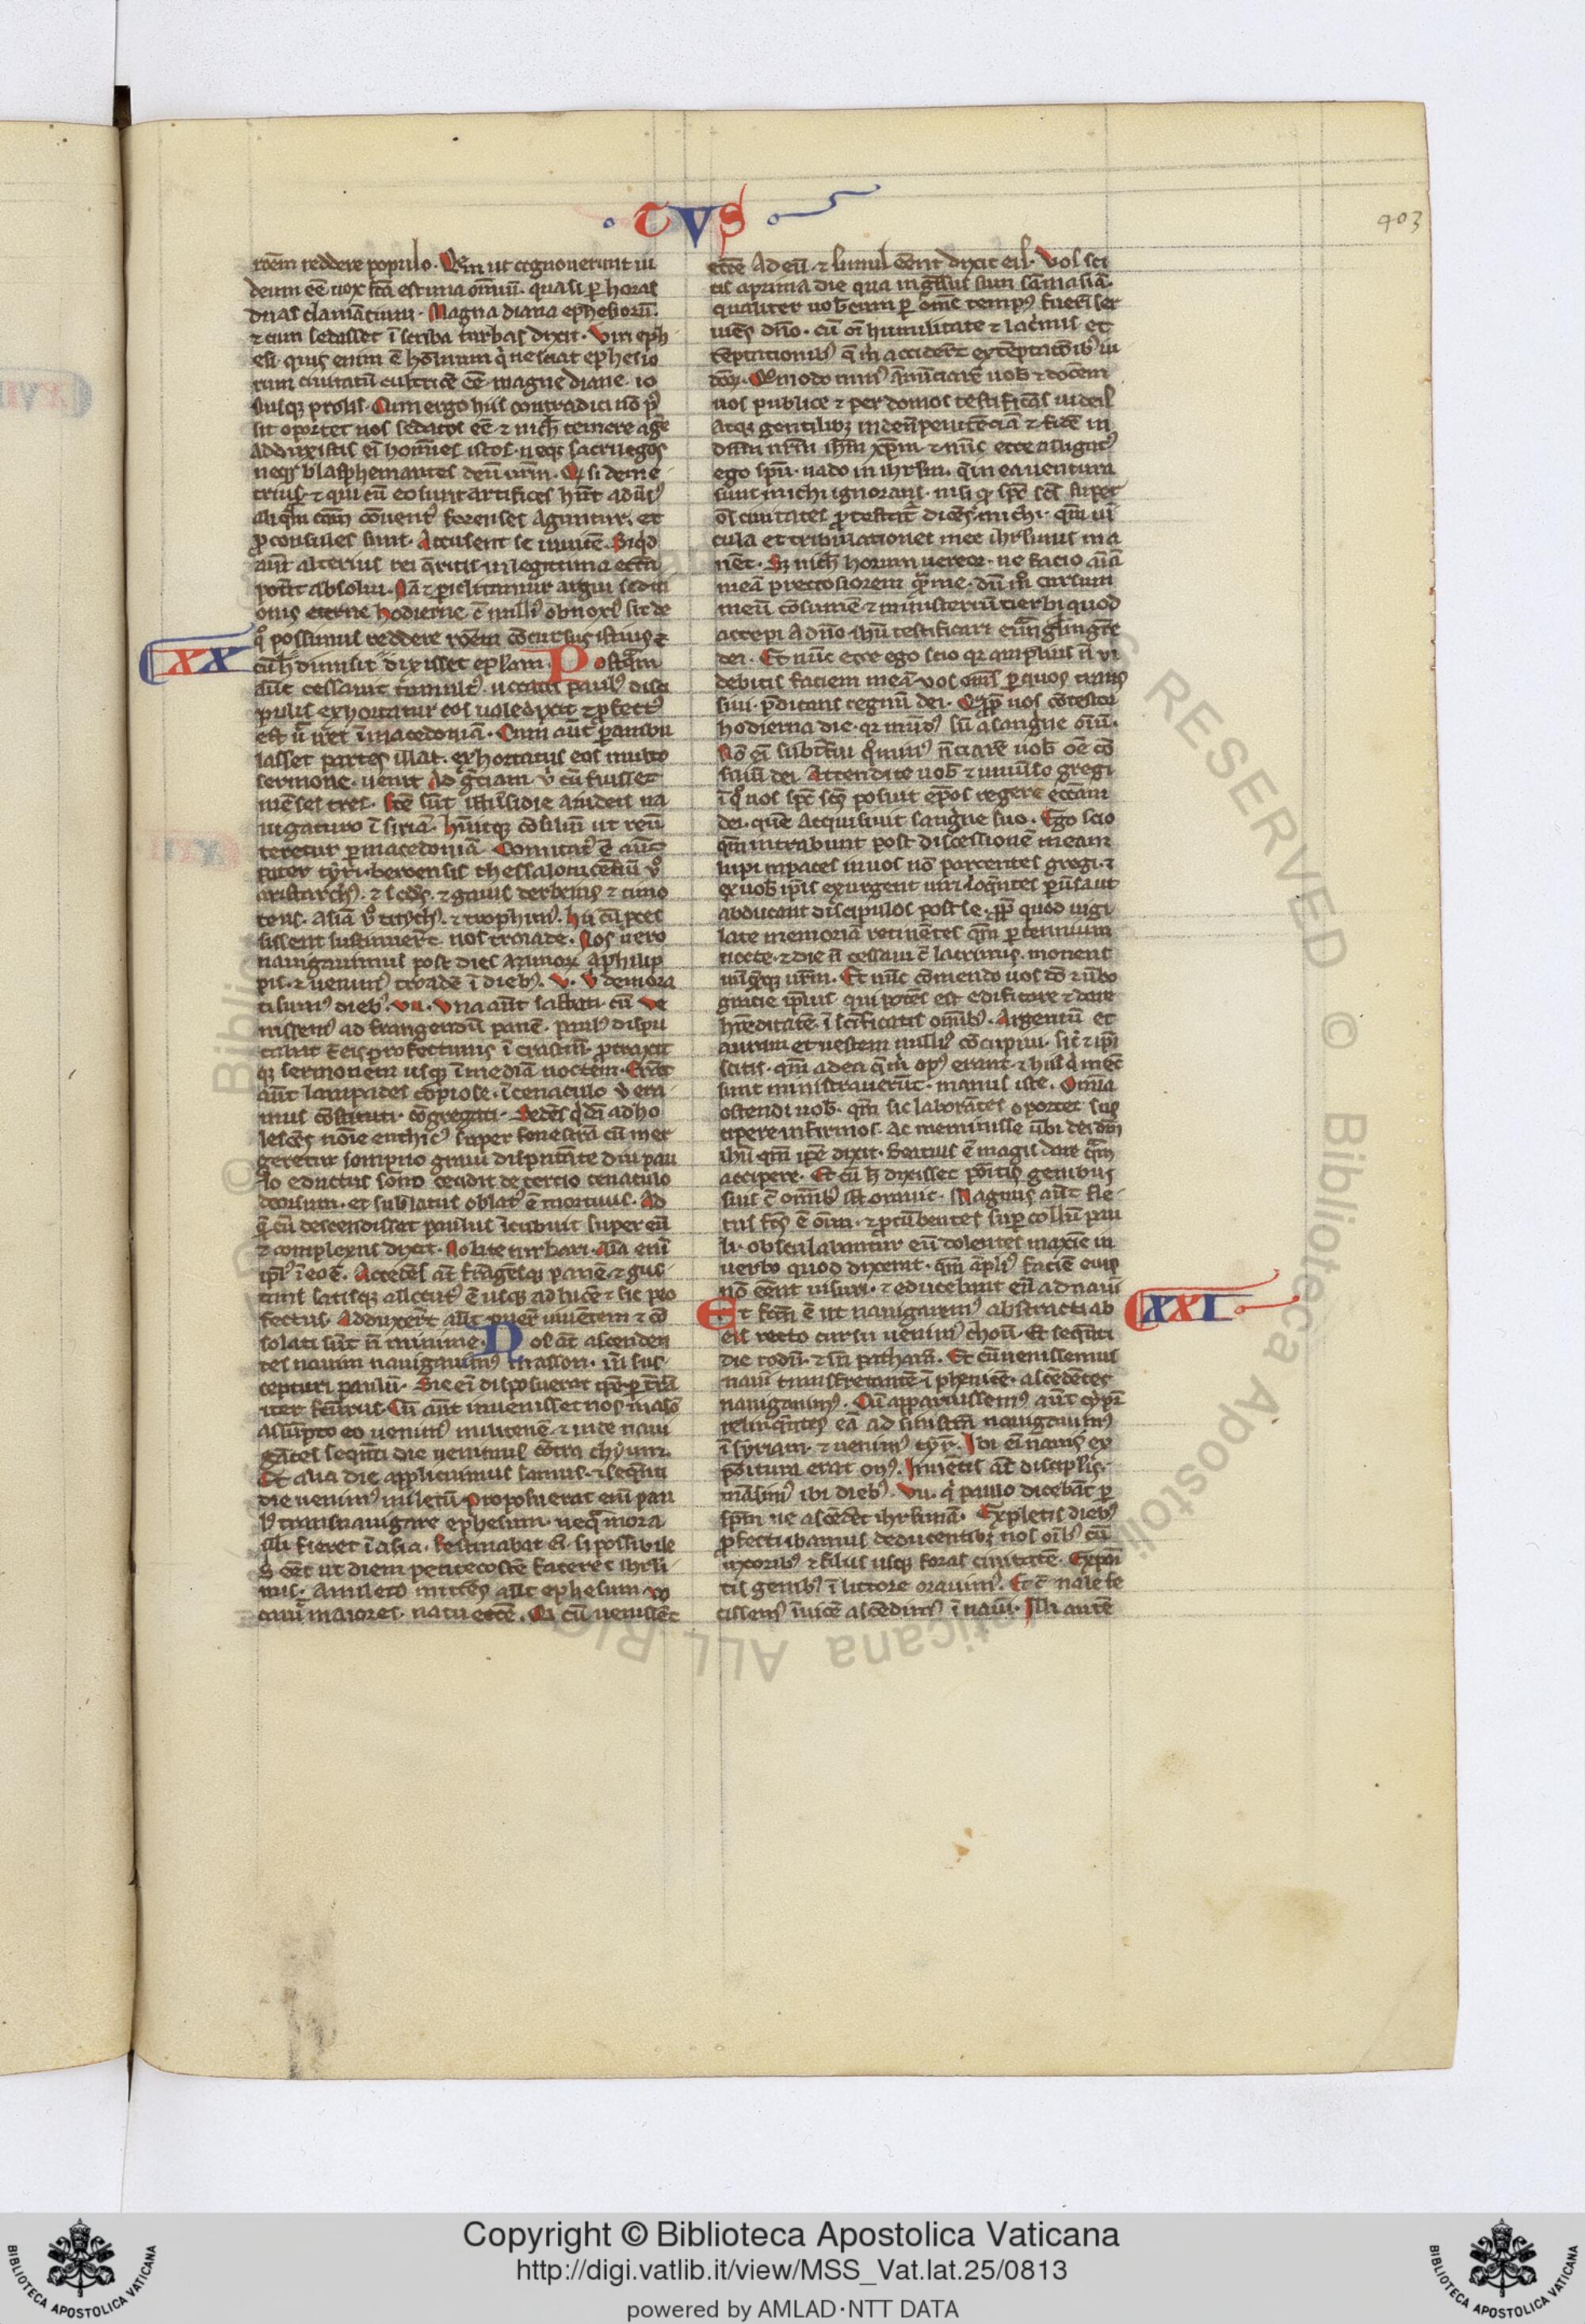 · TVS
903
roēm reddere populo. Qem ut cognouerunt iu
deum eē uox fc̄a est una omīu. quasi ꝑ horas
duas clamantium. Magna diana ephesiorū.
⁊ cum sedasset ī scriba turbas dixit. Viri eph
esi. quis enim ē hominum q̇ nesciat ephesio
rum ciuitatū cultricē eē. magne diane. io
uisqꝫ prolis. Cum ergo hiis contradici nō pͦ
sit oportet uos sedatos eē ⁊ nich̄ temere agē
Adduxistis eī homīes istos. neqꝫ sacrilegos
neqꝫ blasphemantes deū ur̄m. Qꝫ si deme
trius ⁊ qui cū eo sunt artifices hn̄t adūsꝰ
aliq̄m cām cōuentꝰ forenses aguntur. et
ꝓconsules sunt. Accusent se inuicē. Siqd̄
aūt alterius rei q̄ritis in legittima ecc̄ia
pot̄it absolui. Nā ⁊ ꝑiclitamur argui sediti
onis eterne hodierne. c̄ nullꝰ obnoxiꝰ sit de
qͦ possimus reddere roēm concursus istius ⁊
XX
cū h̄ dimisit dixisset ecclam. Postq̄m
aūt cessauit tumultꝰ uocatis paulꝰ disci
pulis exhortatur eos ualedixit ⁊ ꝓfectꝰ
est ū iret ī macedoniā. Cum aūt ꝑambu
lasset partes illas. exhortatus eos multo
sermone. uenit ad greciam ū cū fuisset
menses tres. fc̄e sūt illi īsidie a iudeis na
uigaturo ī siriā. hūitqꝫ cōsiliū ut reuͤ
teretur ꝑ macedoniā. Comitatꝰ ē aūt
pater tyri. beroensis thessalonicēsiū ūͦ
aristarchꝰ. ⁊ secūdꝰ. ⁊ gaius derbeus ⁊ timo
teus. asia ūͦ titychꝰ. ⁊ trophimꝰ. hii cū preces
sissent sustinuer̄t nos troiade. Nos uero
nauigauimus post dies azimorꝫ a philip
pis. ⁊ uenimꝰ troadē ī diebꝰ. v. v̄ demora
ti sumꝰ diebꝰ. vii. Vna aūt sabbati cū ue
nissemꝰ ad frangendū panē. paulꝰ dispu
tabat cū eis profecturus ī crastinū. protraxit
qꝫ sermonem usqꝫ ī mediā noctem. Erāt
aūt lampades copiose. ī cenaculo ū era
mus constituti. cōgregati. Sedēs q̇dā ado
lescēs noīe euthicꝰ super fenestrā cū mer
geretur sompno graui disputāte diu pau
lo eductus sōno cecidit de tercio cenaculo
deorsum. et sublatus oblatꝰ ē mortuus. Ad
q̄ cū descendisset paulus īcubuit super eū
⁊ complexus dixit. Nolite turbari. aīa enī
ip̄iꝰ ī eo ē. Accedēs at̄ frāgēsqꝫ panē ⁊ gus
tans satisqꝫ allocutꝰ ē usqꝫ ad lucē ⁊ sic pro
fectus. Adduxer̄t aūt puer uiuētem ⁊ cō
solati sūt n̄ minime. Nos at̄ ascenden
tes nauim nauigauimꝰ ī nasson. īn̄ sus
cepturi paulū. Sic eī disposuerat ip̄e ꝑ t̄rā
iter facturus. Cū aūt inuenisset nos ī nasō
assūpto eo uenimꝰ militenē. ⁊ inde naui
gātes sequēti die uenimus cōtra chyum.
Et alia die applicuimus samus. ⁊ sequēti
die uenimꝰ miletū. proposuerat enī pau
lꝰ transnauigare ephesum. neq̄ mora
illi fieret ī asia. festinabat eī. si possibile
s̄ ēēt ut diem pentecostē faceret ihr̄li
mis. A mileto mittēs aūt ephesum uo
cauit maiores. natu ecc̄e. Qͥ cū uenissēt
ecc̄e ad eū. ⁊ simul eēnt dixit eis. Vos sci
tis a prima die qua ingressus sum sām asiā.
qualiter uobcum ꝑ om̄e tempꝰ fuerī ser
uiēs dn̄o. cū oī humilitate ⁊ lacrimis et
tēptationibꝰ q̄ m̄ acciderūt ex tēptatōibꝰ iu
deorꝫ. Qͦmodo nimꝰ ānunciarē uob̄ ⁊ docēm
uos publice ⁊ per domos testificās iudeis
atqꝫ gentilibꝫ in deū penitēciā ⁊ fidē in
dn̄m nr̄m ihm̄ xp̄m. ⁊ nūc ecce alligatꝰ
ego sp̄u. uado in ihr̄lm. q̄ in ea uentura
sunt michi ignorans. nisi qꝫ sp̄c sc̄s super
oēs ciuitates ꝓtestat̄ dicēs michi. qm̄ uī
cula et tribulationes mee ihr̄limis ma
nēt. Sꝫ nich̄ horum uereor. ne facio aīā
meā preciosiorem q̄ me. dū īn̄ cursum
meū cōsumē ⁊ ministerīu uerbi quod
accepi a dn̄o ihū testificari euāgl̄m gr̄e
dei. Et nūc ecce ego scio qꝫ amplius n̄ ui
debitis faciem meā. uos om̄s ꝑ quos trans
siui. p̄dicans regnū dei. Qꝓp̄ uos cōtestor
hodierna die. qꝫ mūdꝰ sū a sangīne oīm.
Nō eī subt̄fui qͦminꝰ ānūciarē uob̄ oē cō
siliū dei. Attendite uob̄ ⁊ uniūso gregi
ī qͦ uos sp̄c sc̄s posuit ep̄os regere ecc̄am
dei. quē acquisiuit sangīne suo. Ego scio
qm̄ intrabunt post discessionē meam
lupi rapaces in uos nō parcentes gregi. ⁊
ex uob̄ ip̄is exurgent uiri loq̄ntes ꝑūsa ut
abducant discipulos post se. ꝓp̄ quod uigi
late memoriā retinētes qm̄ ꝑ triennium
nocte. ⁊ die n̄ cessaui c̄ lacrimis. monens
unūq̄qꝫ ur̄m. Et nūc cōmendo uos dō ⁊ ūbo
gracie ip̄ius qui potēs est edificare ⁊ dare
hr̄editatē ī sc̄ificatis omībꝰ. Argentū et
aurum et uestem nulliꝰ cōcupiui. sic̄ ⁊ ip̄i
scitis. qm̄ ad ea q̄ m̄ opꝰ erant. ⁊ hiis q̇ mec̄
sunt ministrauerūt. manus iste. Omīa
ostendi uob̄. qm̄ sic laborātes oportet sus
cipere infirmos. ac meminisse ūbi dei dn̄i
ihū qm̄ ip̄e dixit. Beatius ē magis dare q̄m
accipere. Et cū h̄ dixisset positis genibus
suis c̄ omībꝰ ill̄ orauit. Magnus aūt fle
tus fc̄s ē oīm. ⁊ ꝓcūbentes suꝑ collū pau
li. obsculabantur eū dolentes maxīe in
uerbo quod dixerat. qm̄ āpliꝰ faciē eius
nō eēnt uisuri. ⁊ educebant eū ad nauī
XXI
Et fc̄m ē ut nauigaremꝰ abstracti ab
eis recto cursu uenimꝰ choū. Et seq̄nti
die rodū. ⁊ in̄ patharā. Et cū uenissemus
nauī transfretantē ī phenicē. ascēdētes
nauigauimꝰ. Cū apparuissemꝰ aūt cypꝛ
relinq̄ntes eā ad sinistrā nauigauimꝰ
ī syriam. ⁊ uenimꝰ tyꝝ. Ibi eī nauis ex
positura erat onꝰ. Inuētis at̄ disciplis.
māsimꝰ ibi diebꝰ. vii. q̇ paulo dicebāt ꝑ
sp̄m ne ascēdēt ihr̄limā. Expletis diebꝰ
ꝓfecti ibamus deducentibꝫ nos oībꝰ cū
uxoribꝰ ⁊ filiis usqꝫ foras ciuitatē. Exposi
tis genibꝰ ī littore orauimꝰ. Et c̄ uale fe
cissemꝰ īuicē ascēdimꝰ ī nauī. Illi autē
Copyright © Biblioteca Apostolica Vaticana
http://digi.vatlib.it/view/MSS_Vat.lat.25/0813
powered by AMLAD·NTT DATA
BIBLIOTECA APOSTOLICA VATICANA
BIBLIOTECA APOSTOLICA VATICANA